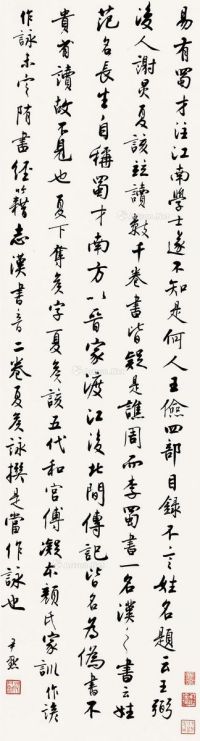 易有蜀才注江南學士遂不知是何人王儉四部目錄不言姓名題云王弼
後人謝炅夏該並讀數千卷書皆疑是譙周而李蜀書一名漢之書云姓
范名長生自稱蜀才南方以晉家渡江後北間傳記皆名為偽書不
貴省讀故不見也夏下奪矦字夏矦該五代和宮傅凝本顏氏家訓作該
作詠未定隋書經籍志漢書音二卷夏矦詠撰是當作詠也
尹默